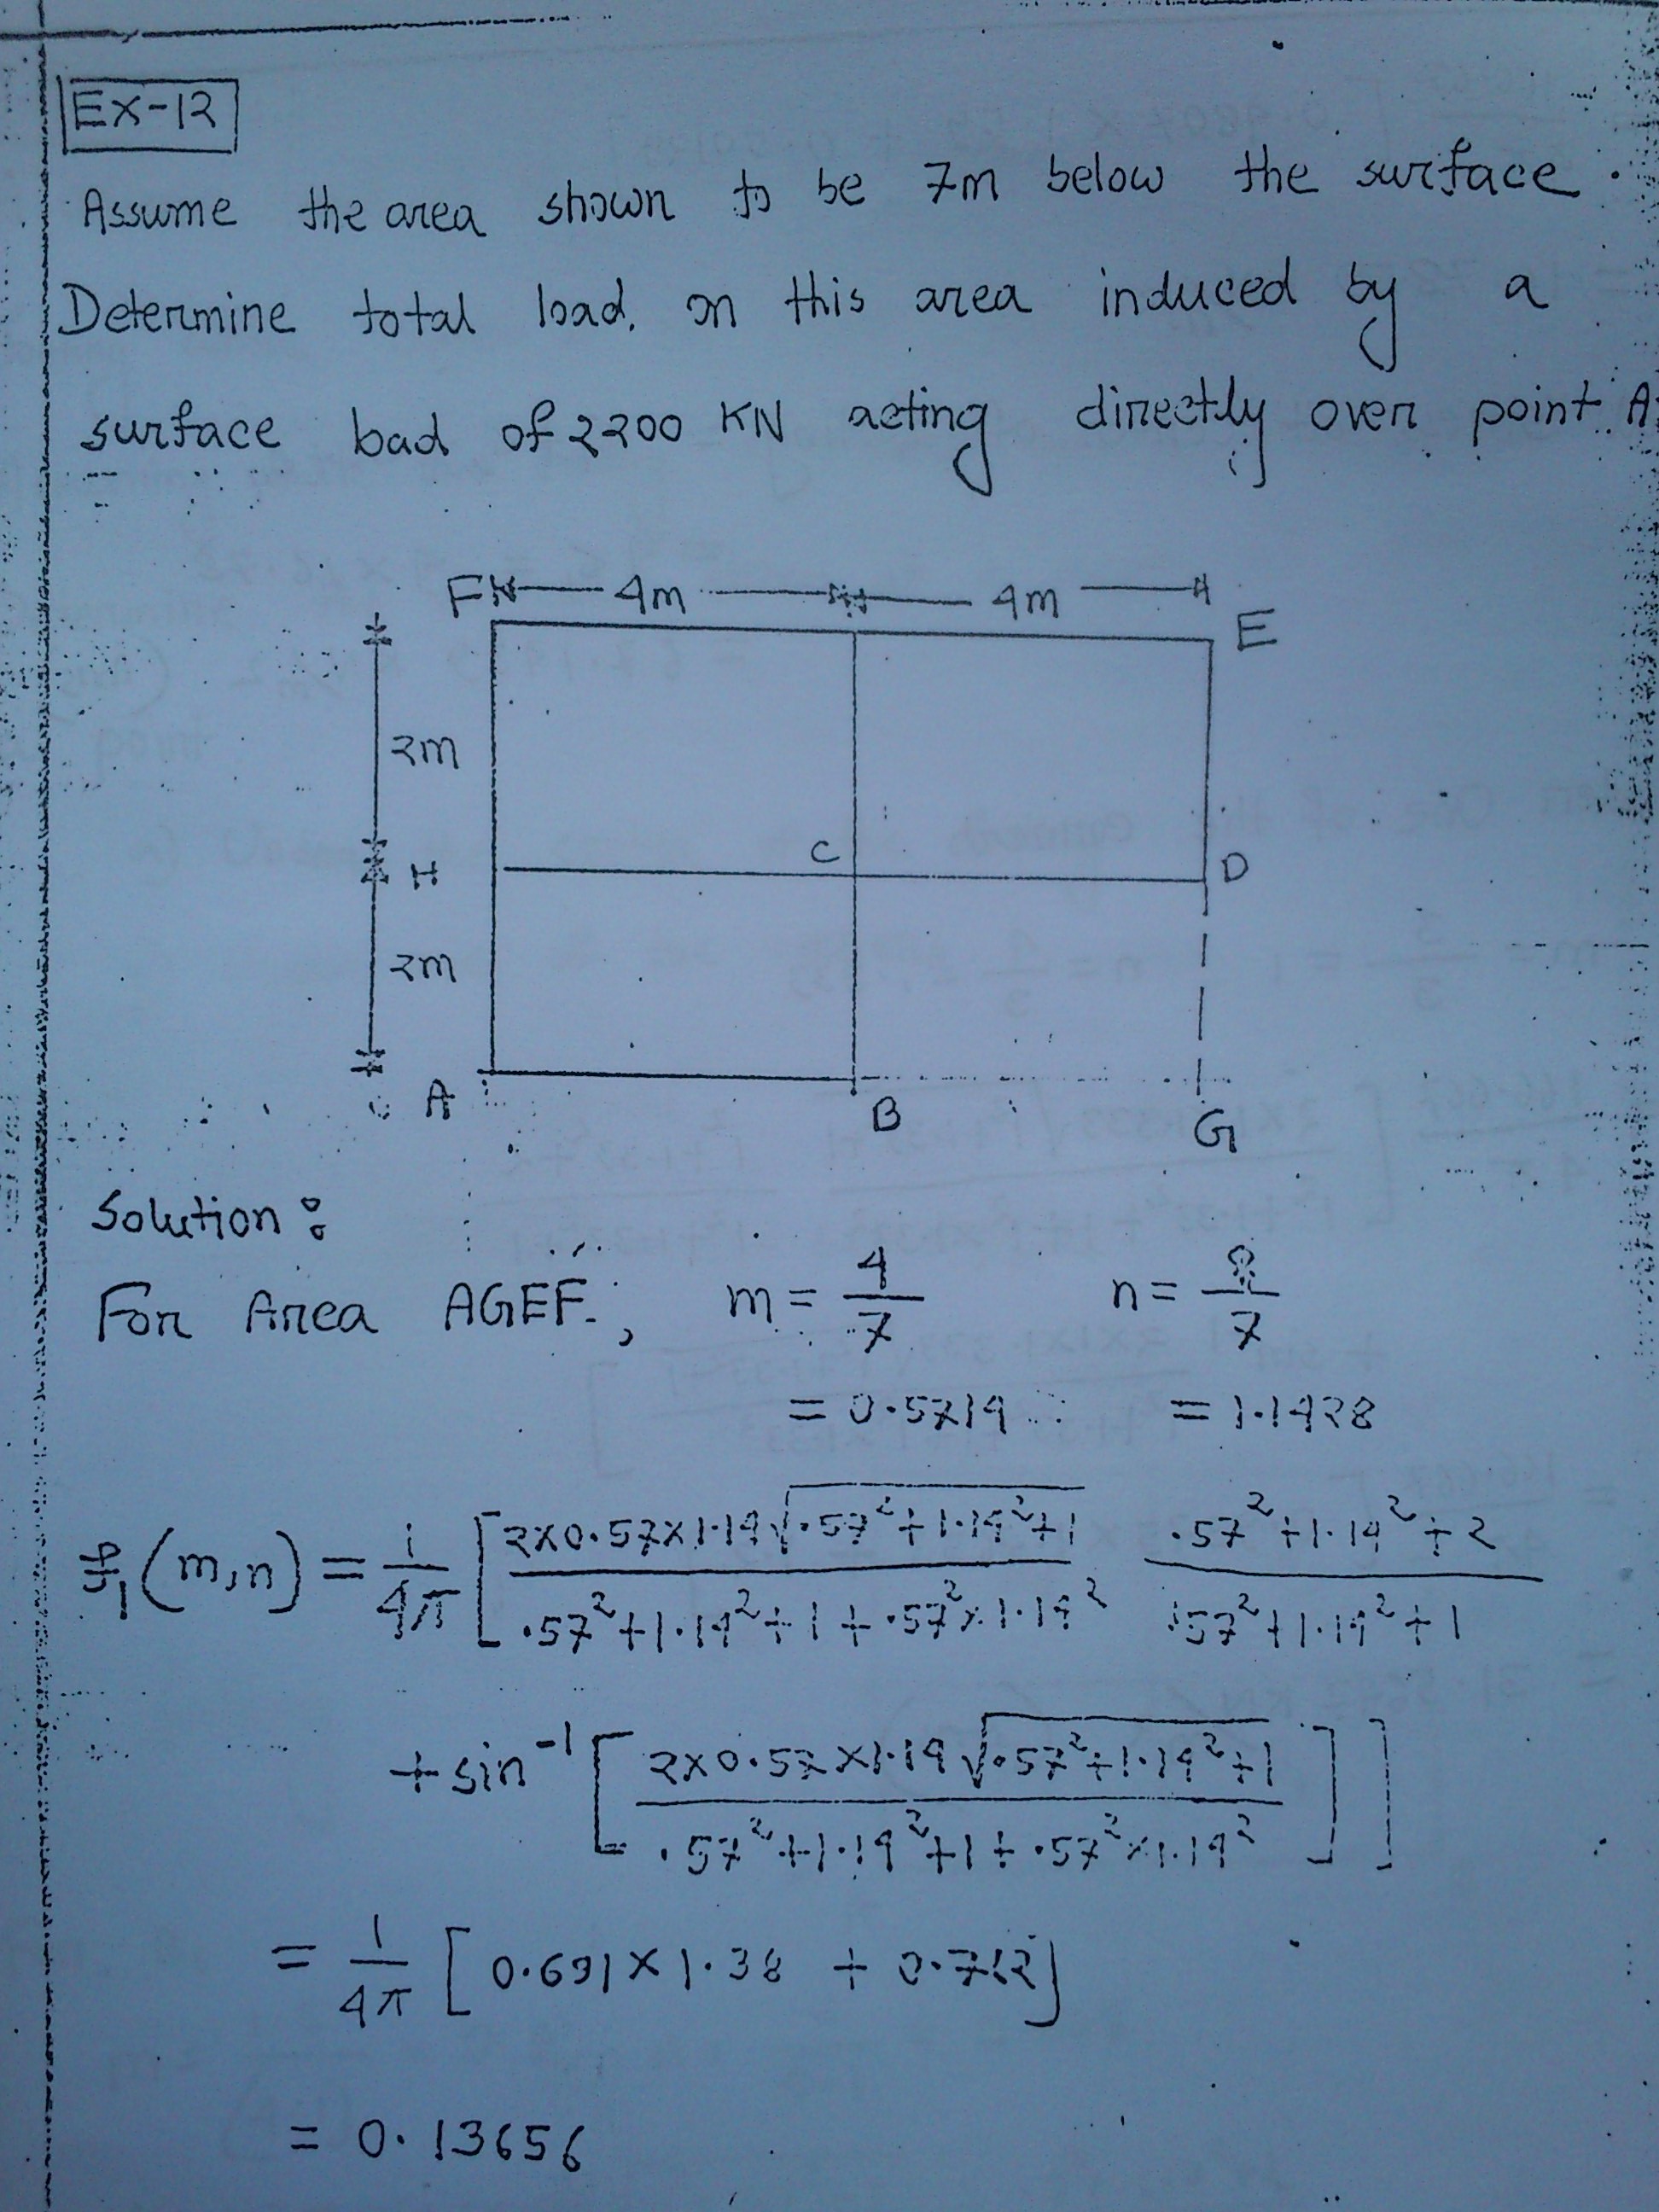 Ex-12
Assume the area shown to be 7m below the surface.
Determine total load. on this area induced by a
surface load of 2200 KN acting directly over point A.
F 4m 4m E
2m
H C D
2m
A B G
Solution :
For Area AGEF., m = 4/7 n = 8/7
= 0.5714 = 1.1428
(m,n) = 1/4π [ 2×0.57×1.14√.57²+1.14²+1 / .57²+1.14²+1+.57²×1.14² .57²+1.14²+2 / .57²+1.14²+1
+ sin⁻¹ [ 2×0.57×1.14√.57²+1.14²+1 / .57²+1.14²+1+.57²×1.14² ] ]
= 1/4π [ 0.691×1.38 + ]
= 0.13656